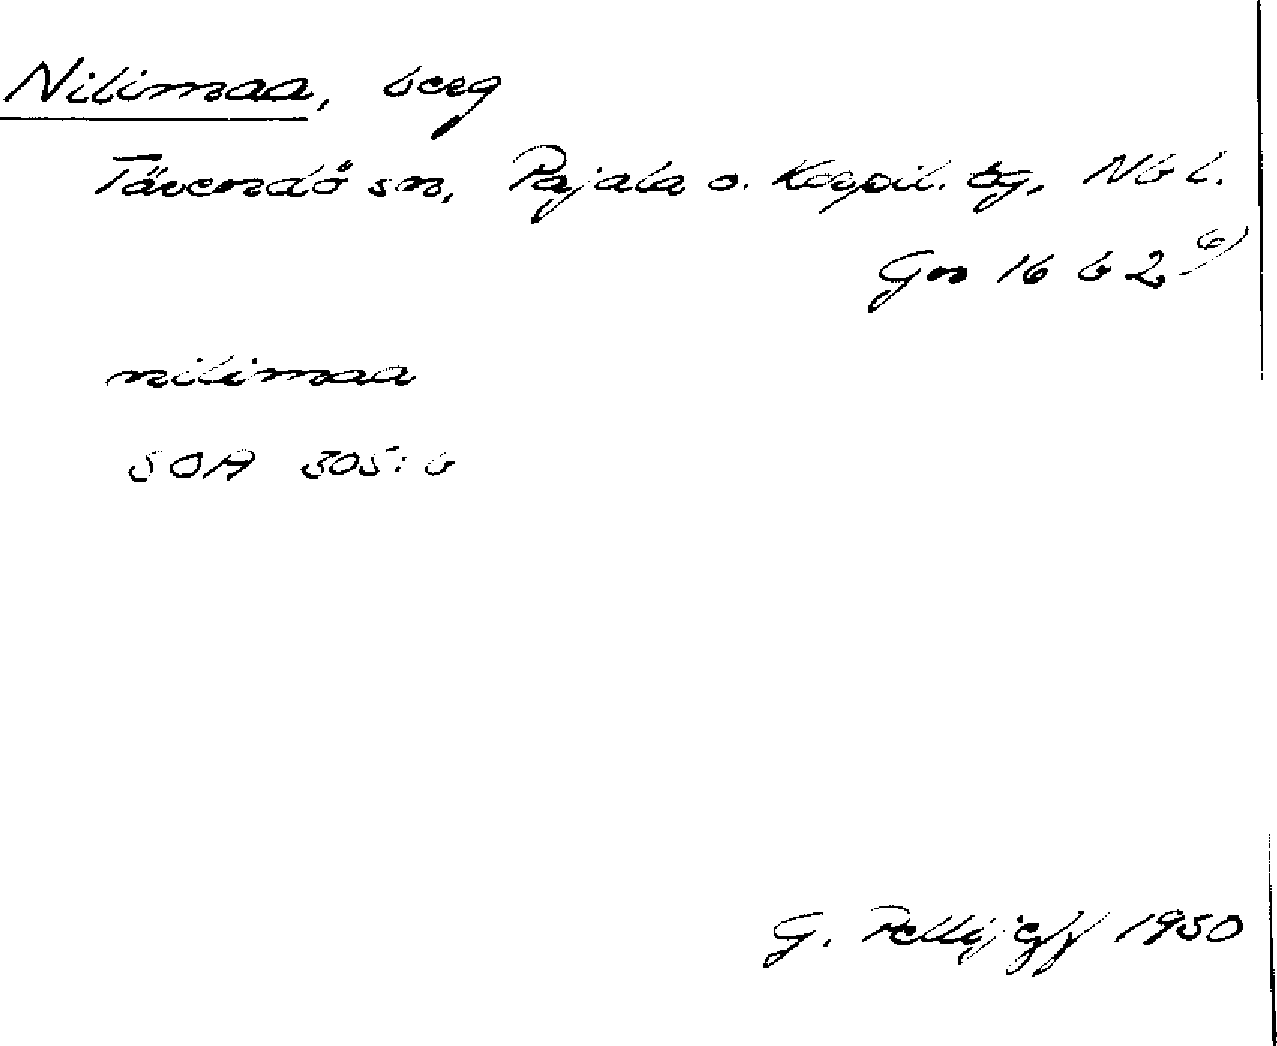 Nilimaa, berg
Tärendö sn, Pajala o. Korpil. tg, Nb l.
Gn 16 b 2
nilimaa
SOA 305: 6
G. Pellijeff 1950